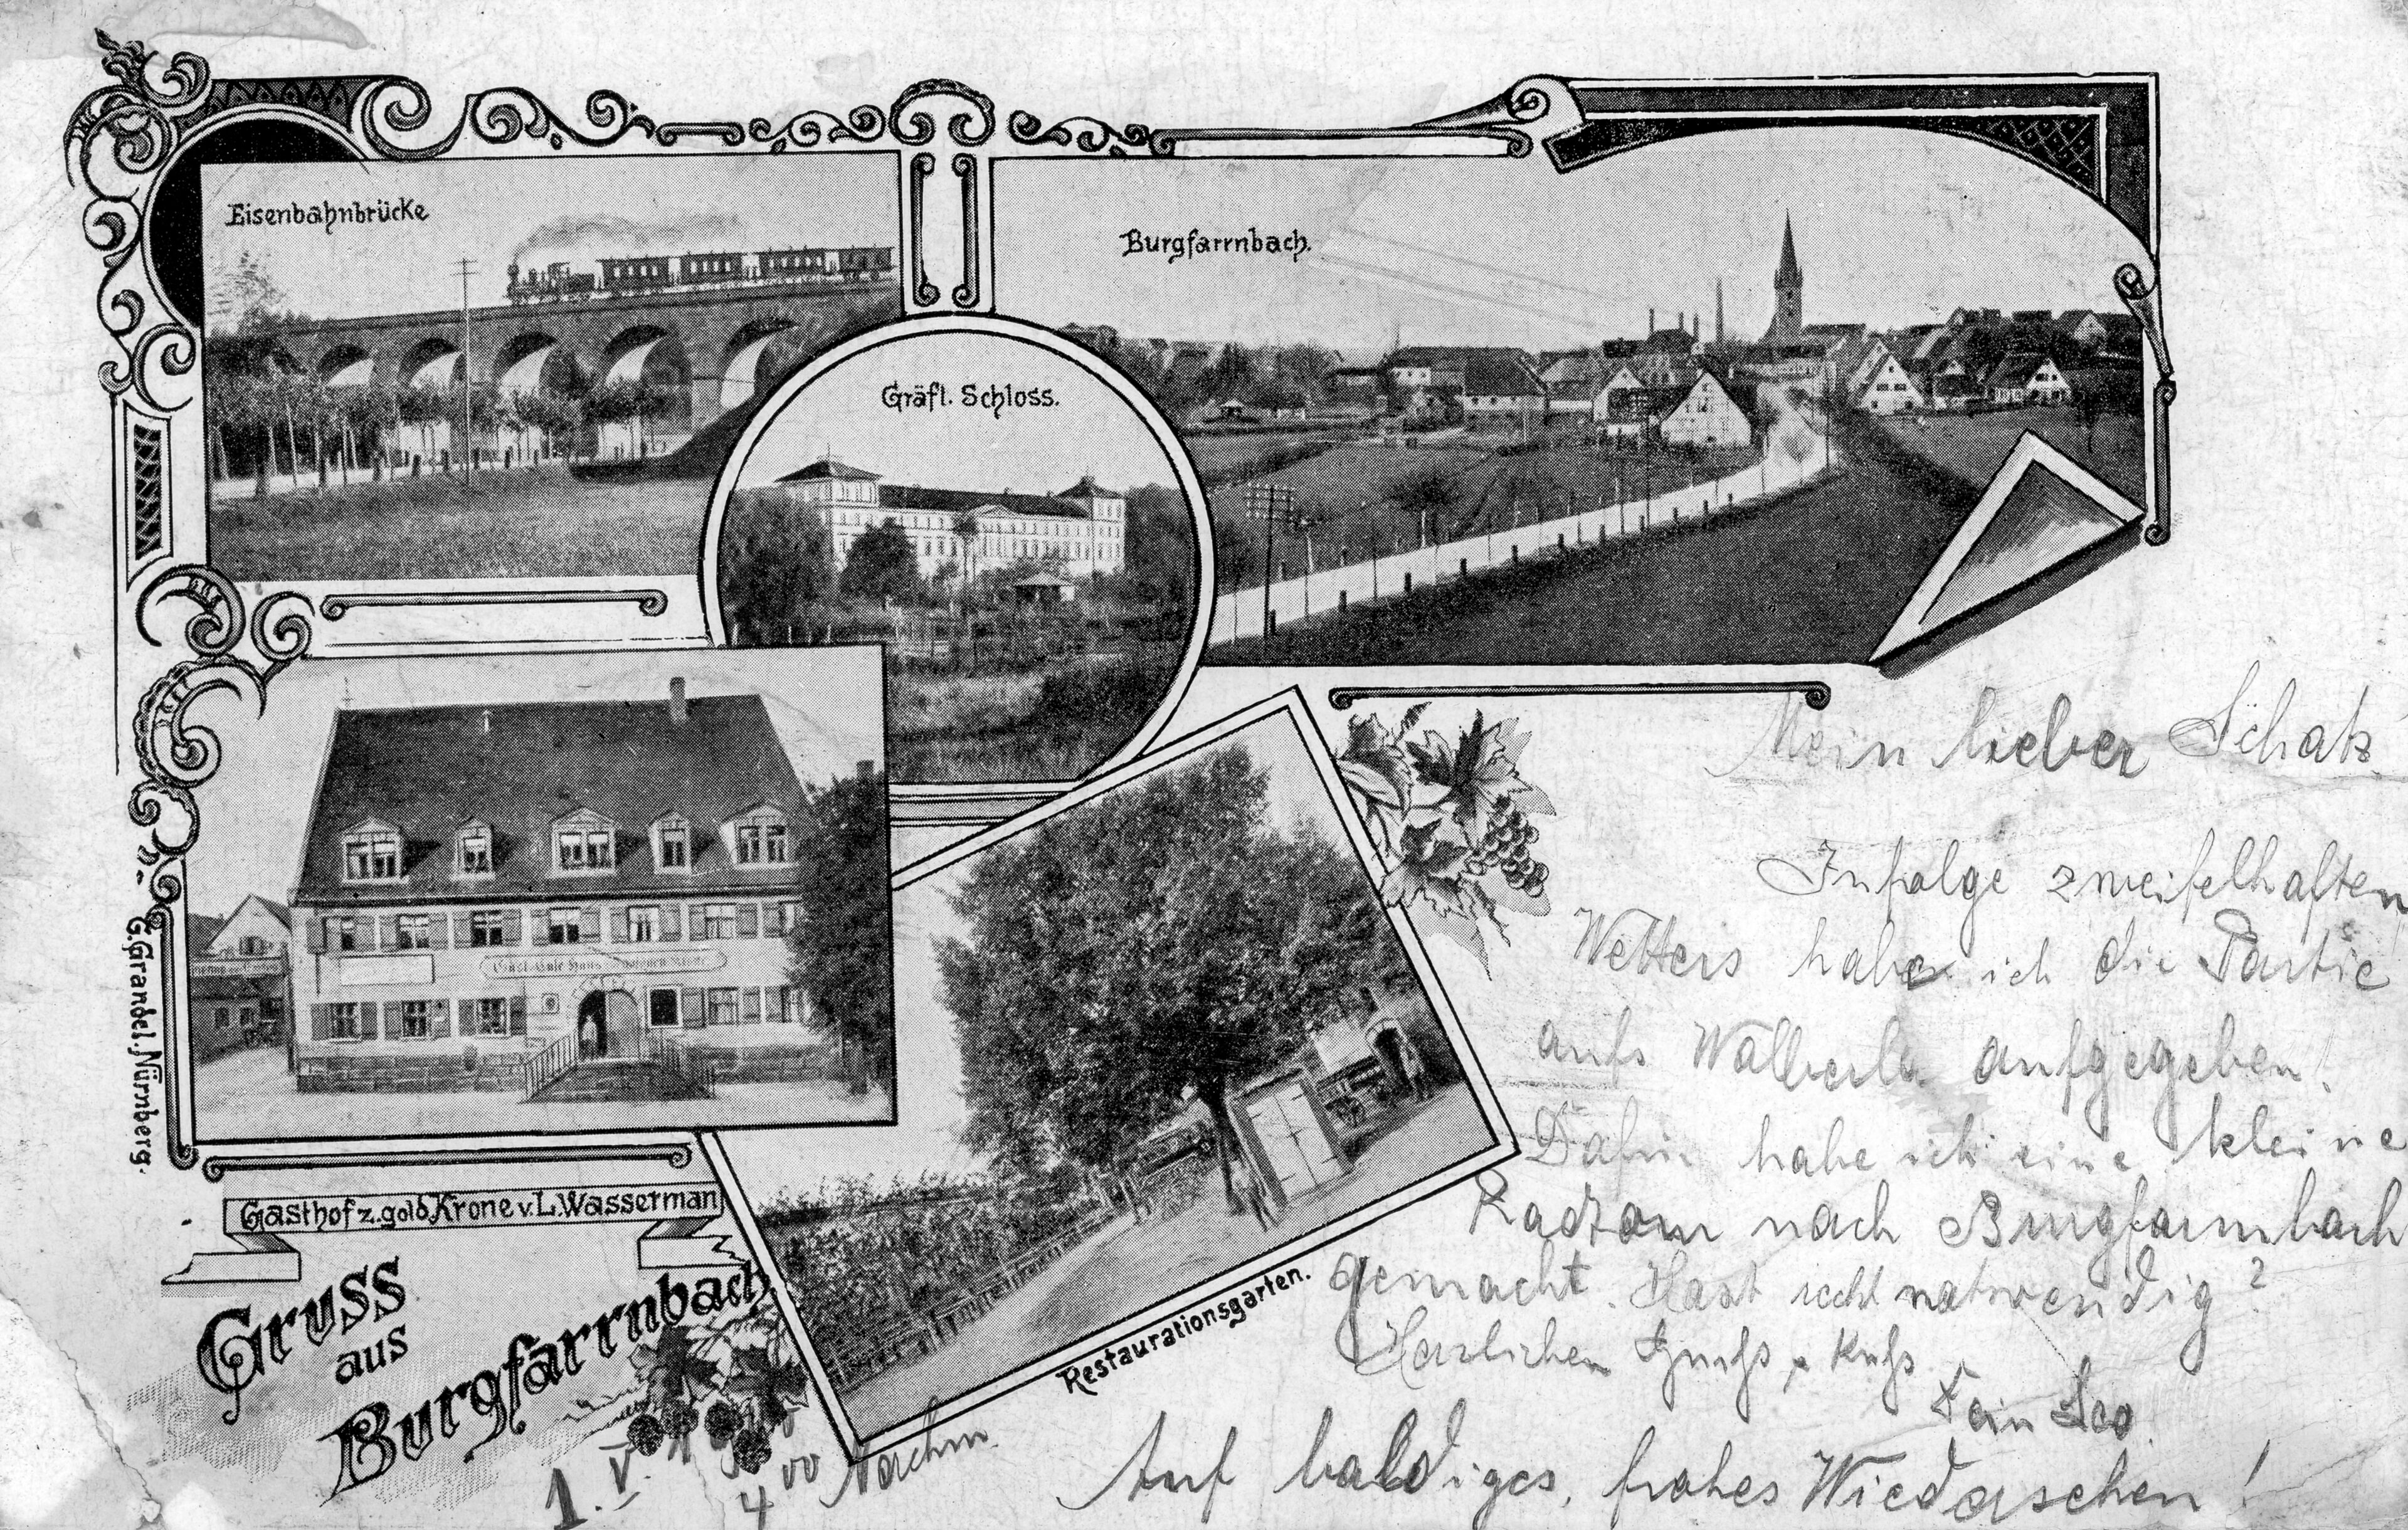 Eisenbahnbrücke
Burgfarrnbach.
Gräfl. Schloss.
G. Grandel. Nürnberg.
Gasthof z. gold. Krone v. L. Wasserman
Gruss
aus
Burgfarrnbach
Restaurationsgarten.
Mein lieber Schatz
Infolge zweifelhaften
Wetters habe ich die Partie
aufs Walberla aufgegeben!
Dafür habe ich eine kleine
Radtour nach Burgfarrnbach
gemacht. Hast recht notwendig?
Herzlichen Gruß u Kuß
Dein Leo.
Auf baldiges, frohes Wiedersehen!
1. V.
4 00 Nachm.